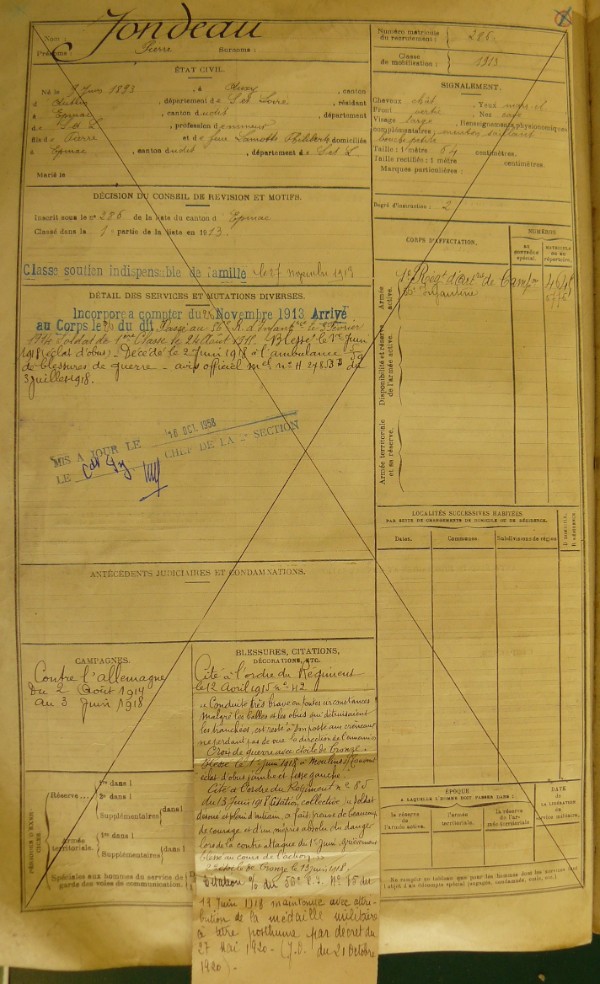 Nom : Jondeau
Prénoms : Pierre Surnoms :
ÉTAT CIVIL.
Né le Juin 1893, à , canton
d , département de S. et Loire, résidant
à Epinac, canton dudit, département
de S. et L., profession de mineur
fils de Pierre et de feue Lamotte domiciliés
à Epinac, canton dudit, département de S. et L.
Marié le
DÉCISION DU CONSEIL DE REVISION ET MOTIFS.
Inscrit sous le n° 286 de la liste du canton d'Epinac
Classé dans la 1e partie de la liste en 1913.
Classé soutien indispensable de famille le 27 novembre 1913
DÉTAIL DES SERVICES ET MUTATIONS DIVERSES.
Incorporé à compter du Novembre 1913 Arrivé
au Corps le du dit Passé au 56e R. d'Infanrie le 3 Février
Soldat de 1ère Classe le Blessé le 1er Juin
1918 (éclat d'obus). Décédé le 2 Juin 1918 à l'ambulance
de blessures de guerre - avis officiel n° du
3 juillet 1918.
MIS A JOUR LE 10 OCT. 1958
LE CHEF DE LA SECTION
ANTÉCÉDENTS JUDICIAIRES ET CONDAMNATIONS.
CAMPAGNES.
Contre l'allemagne
Du 2 Août 1914
au 3 Juin 1918
BLESSURES, CITATIONS,
DÉCORATIONS, ETC.
Cité à l'ordre du Régiment
le 12 Avril 1915 n° 42
"Conduite très brave en toutes circonstances
malgré les balles et les obus qui détruisaient
les tranchées, est resté à son poste aux créneaux
ne perdant pas de vue la direction de l'ennemi"
Croix de guerre avec étoile de bronze.
blessé le 1er Juin 1918 à
éclat d'obus jambe et fesse gauche.
Cité à l'ordre du Régiment n° 85
du 13 Juin 1918 (citation collective) "soldat
dévoué et plein d'entrain, a fait preuve de beaucoup
de courage et d'un mépris absolu du danger
lors de la contre attaque du 1er Juin, grièvement
blessé au cours de l'action"
étoile de bronze le 13 juin 1918.
Citation du 56e R.I. N° 85 du
13 Juin 1918 maintenue avec attri-
bution de la médaille militaire
à titre posthume par décret du
27 Mai 1920 - (J.O. du 21 Octobre
1920) -
PÉRIODES D'EXERCICES
Réserve
1re dans l
2e dans l
Supplémentaires
dans l
Armée territoriale.
1re dans l
Supplémentaires
dans l
Spéciales aux hommes du service de
garde des voies de communication.
Numéro matricule du recrutement : 286.
Classe de mobilisation : 1913
SIGNALEMENT.
Cheveux chât Yeux
Front Nez
Visage large Renseignements physionomiques
complémentaires : menton saillant
bouche petite
Taille : 1 mètre 64 centimètres.
Taille rectifiée : 1 mètre centimètres.
Marques particulières :
Degré d'instruction : 2
CORPS D'AFFECTATION.
NUMÉROS
au contrôle spécial.
matricule ou au répertoire.
Armée active.
Régt d'Artrie de Campe
56e Infanterie
Disponibilité et réserve de l'armée active.
Armée territoriale et sa réserve.
LOCALITÉS SUCCESSIVES HABITÉES
PAR SUITE DE CHANGEMENTS DE DOMICILE ET DE RÉSIDENCE.
Dates. Communes. Subdivisions de région D. domicile. R. résidence
ÉPOQUE
A LAQUELLE L'HOMME DOIT PASSER DANS :
DATE
DE LA LIBÉRATION DU SERVICE MILITAIRE.
la réserve de l'armée active.
l'armée territoriale.
la réserve de l'armée territoriale